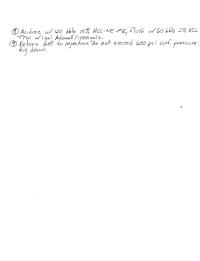 ⑧ Acidize w/ 120 bbls 15% HCL-NE-FE, Flush w/ 60 bbls 2% KCL
TFW w/ 1 gal Adomall/1000 gals.
⑨ Return well to injection do not exceed 600 psi surf. pressure
Rig down.